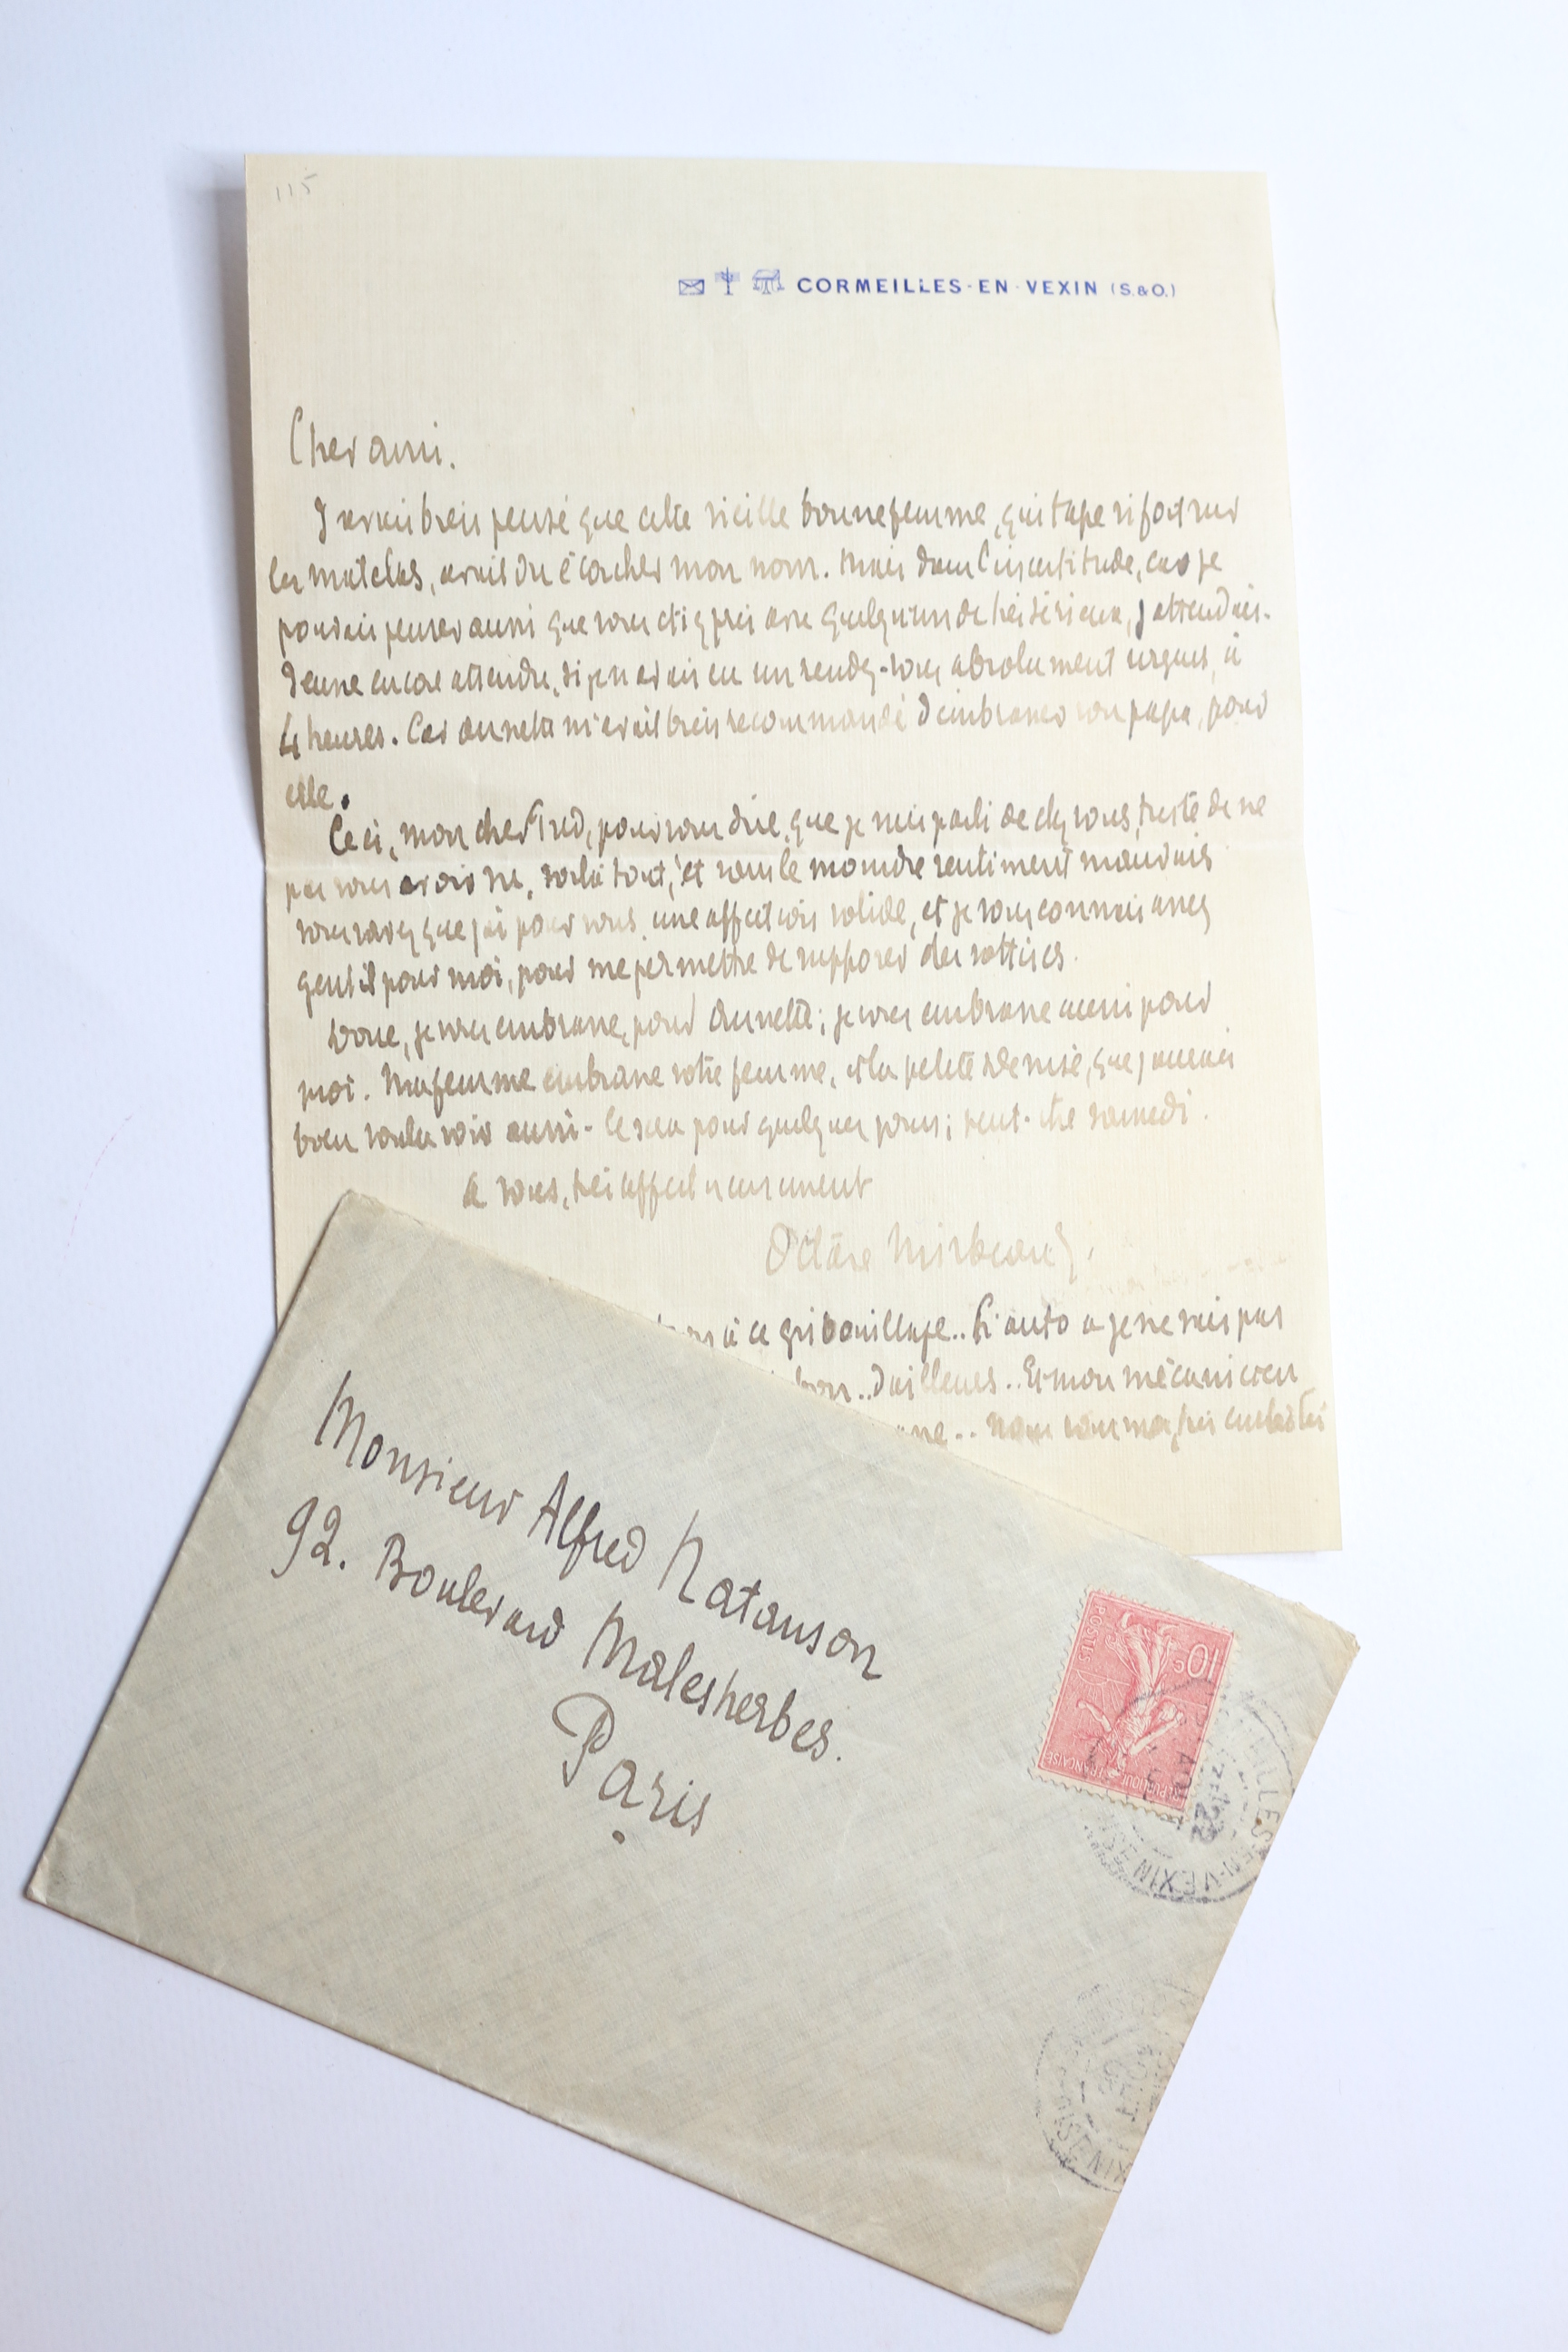 115
CORMEILLES-EN-VEXIN (S.&O.)
Cher ami.
J'avais bien pensé que cette vieille bonne femme, qui tape si fort sur
les matelas, avait dû écorcher mon nom. Mais dans l'incertitude, car je
pouvais penser aussi que vous étiez pris avec quelqu'un de très sérieux, j'attendais.
J'eusse encore attendu, si je n'avais eu un rendez-vous absolument urgent, à
4 heures. Car Annette m'avait bien recommandé d'embrasser son papa, pour
elle.
Ceci, mon cher Fred, pour vous dire, que je suis parti de chez vous, triste de ne
pas vous avoir vu, voilà tout, et sans le moindre sentiment mauvais
vous savez que j'ai pour vous, une affection solide, et je vous connais assez
gentil pour moi, pour me permettre de supposer des sottises.
Donc, je vous embrasse, pour Annette; je vous embrasse aussi pour
moi. Ma femme embrasse votre femme, et la petite Denise, que j'aurais
bien voulu voir aussi - Ce sera pour quelques jours; peut-être samedi.
à vous, très affectueusement
Octave Mirbeau
à ce gribouillage.. L'auto a je ne sais pas
d'ailleurs.. Et mon mécanicien
nous sommes très embêtés
Monsieur Alfred Natanson
92. Boulevard Malesherbes.
Paris
10c
POSTES
REPUBLIQUE FRANÇAISE
EN-VEXIN
22
AOUT